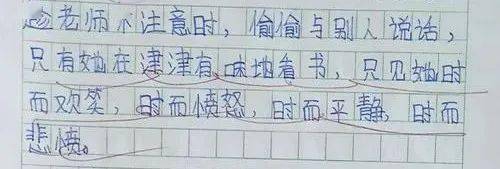 老师不注意时，偷偷与别人说话，
只有她在津津有味地看书，只见她时
而欢笑，时而愤怒，时而平静，时而
悲愤。